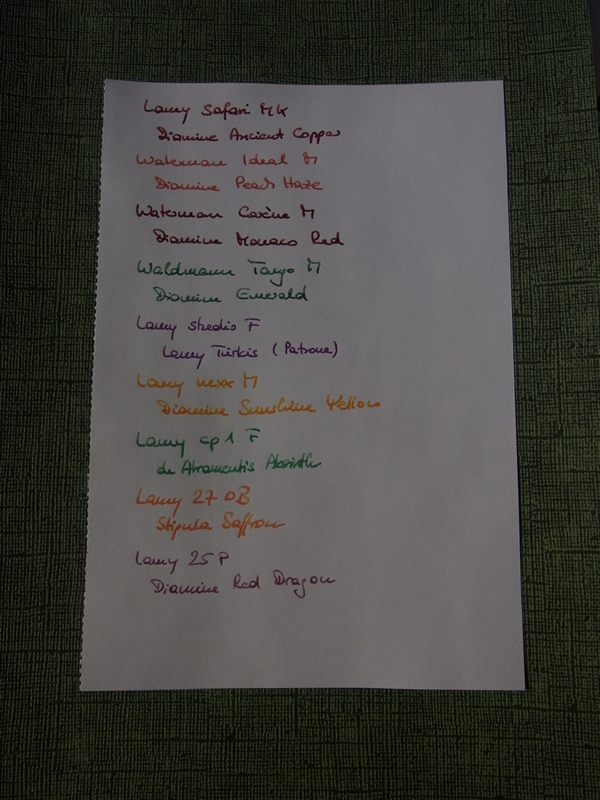 Lamy Safari MK
Diamine Ancient Copper
Waterman Ideal M
Diamine Peach Haze
Waterman Carène M
Diamine Monaco Red
Waldmann Tango M
Diamine Emerald
Lamy studio F
Lamy Türkis (Patrone)
Lamy nexx M
Diamine Sunshine Yellow
Lamy cp 1 F
de Atramentis Absinth
Lamy 27 OB
Stipula Saffron
Lamy 25 P
Diamine Red Dragon